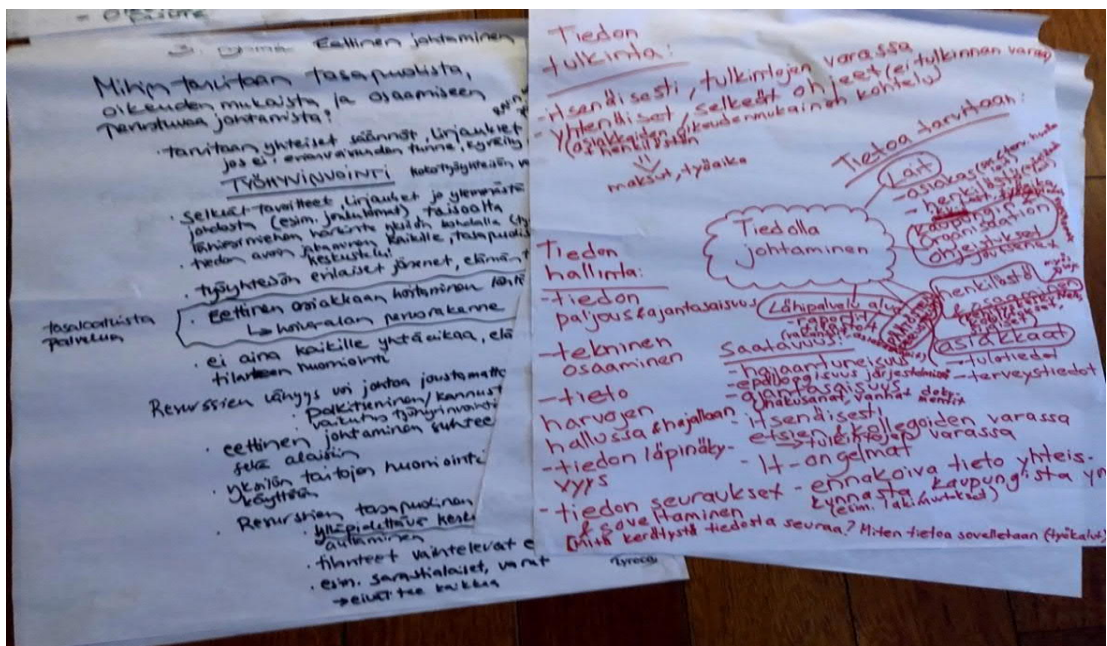 Eettinen johtaminen
Mihin tarvitaan tasapuolista,
oikeudenmukaista ja osaamiseen
perustuvaa johtamista?
· tarvitaan yhteiset säännöt, linjaukset
jos ei eriarvoisuuden tunne, kyräily
TYÖHYVINVOINTI
· selkeät tavoitteet, linjaukset ja
johdosta (esim. joululomat) taisoalta
lähiesimiehen harkinta yksilön kohdalla
· tiedon avoin jakaminen kaikille, tasapuolis
keskustelu
· työyhteisön erilaiset jäsenet, elämän
tasalaatuista
palvelua
· Eettinen asiakkaan hoitaminen
↳ hoiva-alan perusrakenne
· ei aina kaikille yhtä aikaa, elä
tilanteen huomiointi
Resurssien vähyys voi johtaa joustamatto
palkitseminen/kannust
vaikutus työhyvinvointi
· eettinen johtaminen suhtee
sekä alaisiin
· yksilön taitojen huomiointi
käyttöön
· Resurssien tasapuolinen
ylläpidettävä kesk
auttaminen
· tilanteet vaihtelevat e
· esim. sarastialaiset, varat
→ eivät tee kaikkea
Tiedon
tulkinta:
- itsenäisesti, tulkintojen varassa
- yhtenäiset, selkeät ohjeet (ei tulkinnan varaa)
(asiakkaiden oikeudenmukainen kohtelu
& henkilöstön
maksut, työaika
Tietoa tarvitaan:
Lait
- asiakas
- henkilöstö
kaupungin
organisaation
ohjeistukset
Tiedolla
johtaminen
henkilöstö
osaaminen
asiakkaat
- tulotiedot
- terveystiedot
Lähipalvelu alue
- raportit
Tiedon
hallinta:
- tiedon
paljous & ajantasaisuus
- tekninen
osaaminen
- tieto
harvojen
hallussa & hajallaan
- tiedon läpinäky-
vyys
- tiedon seuraukset
& soveltaminen
Saatavuus:
- hajaantuneisuus
- epäloogisuus järjestelmissä
- ajantasaisuus
(hakusanat, vanhat doku-
mentit
- itsenäisesti
etsien & kollegoiden varassa
→ tulkintojen varassa
- It-ongelmat
- ennakoiva tieto yhteis-
kunnasta, kaupungista ym
(esim. lakimuutokset)
[Mitä kerätystä tiedosta seuraa? Miten tietoa sovelletaan (työkalut)